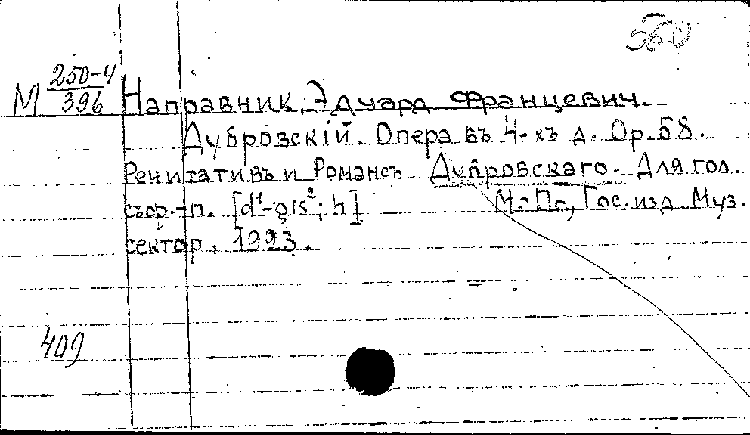 560
М 250-4/396 Направник, Эдуард Францевич.
Дубровскій. Опера въ 4-хъ д. Op. 58.
Речитативъ и Романсъ Дубровскаго. Для гол.
съ ф.-п. [d¹-gis²; h] М.-Пг., Гос. изд. Муз.
сектор. 1923.
409